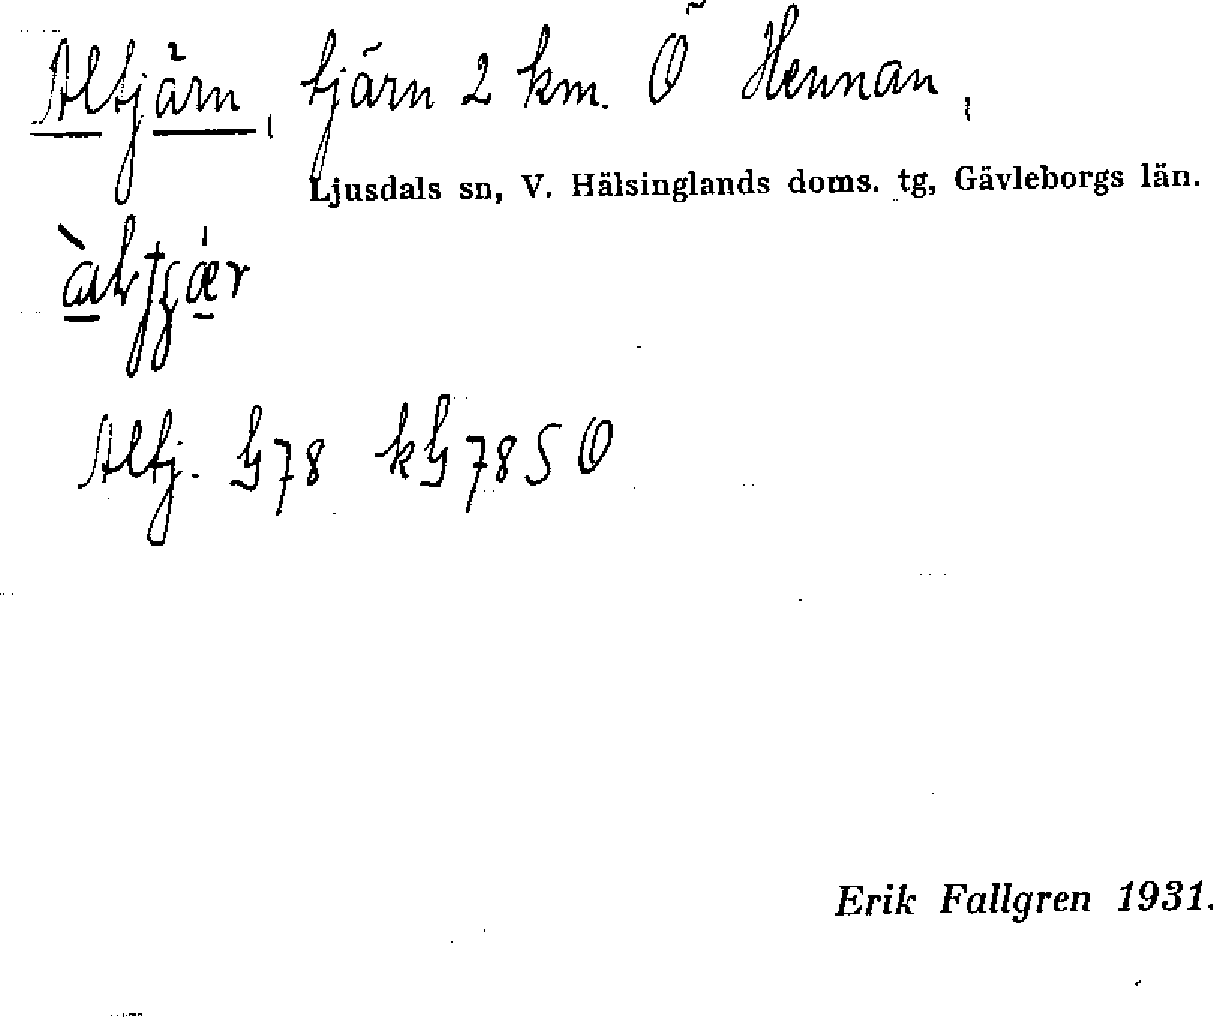 Altjärn, tjärn 2 km. Ö Hennan,
Ljusdals sn, V. Hälsinglands doms. tg, Gävleborgs län.
Altj. G78 kG78SO
Erik Fallgren 1931.